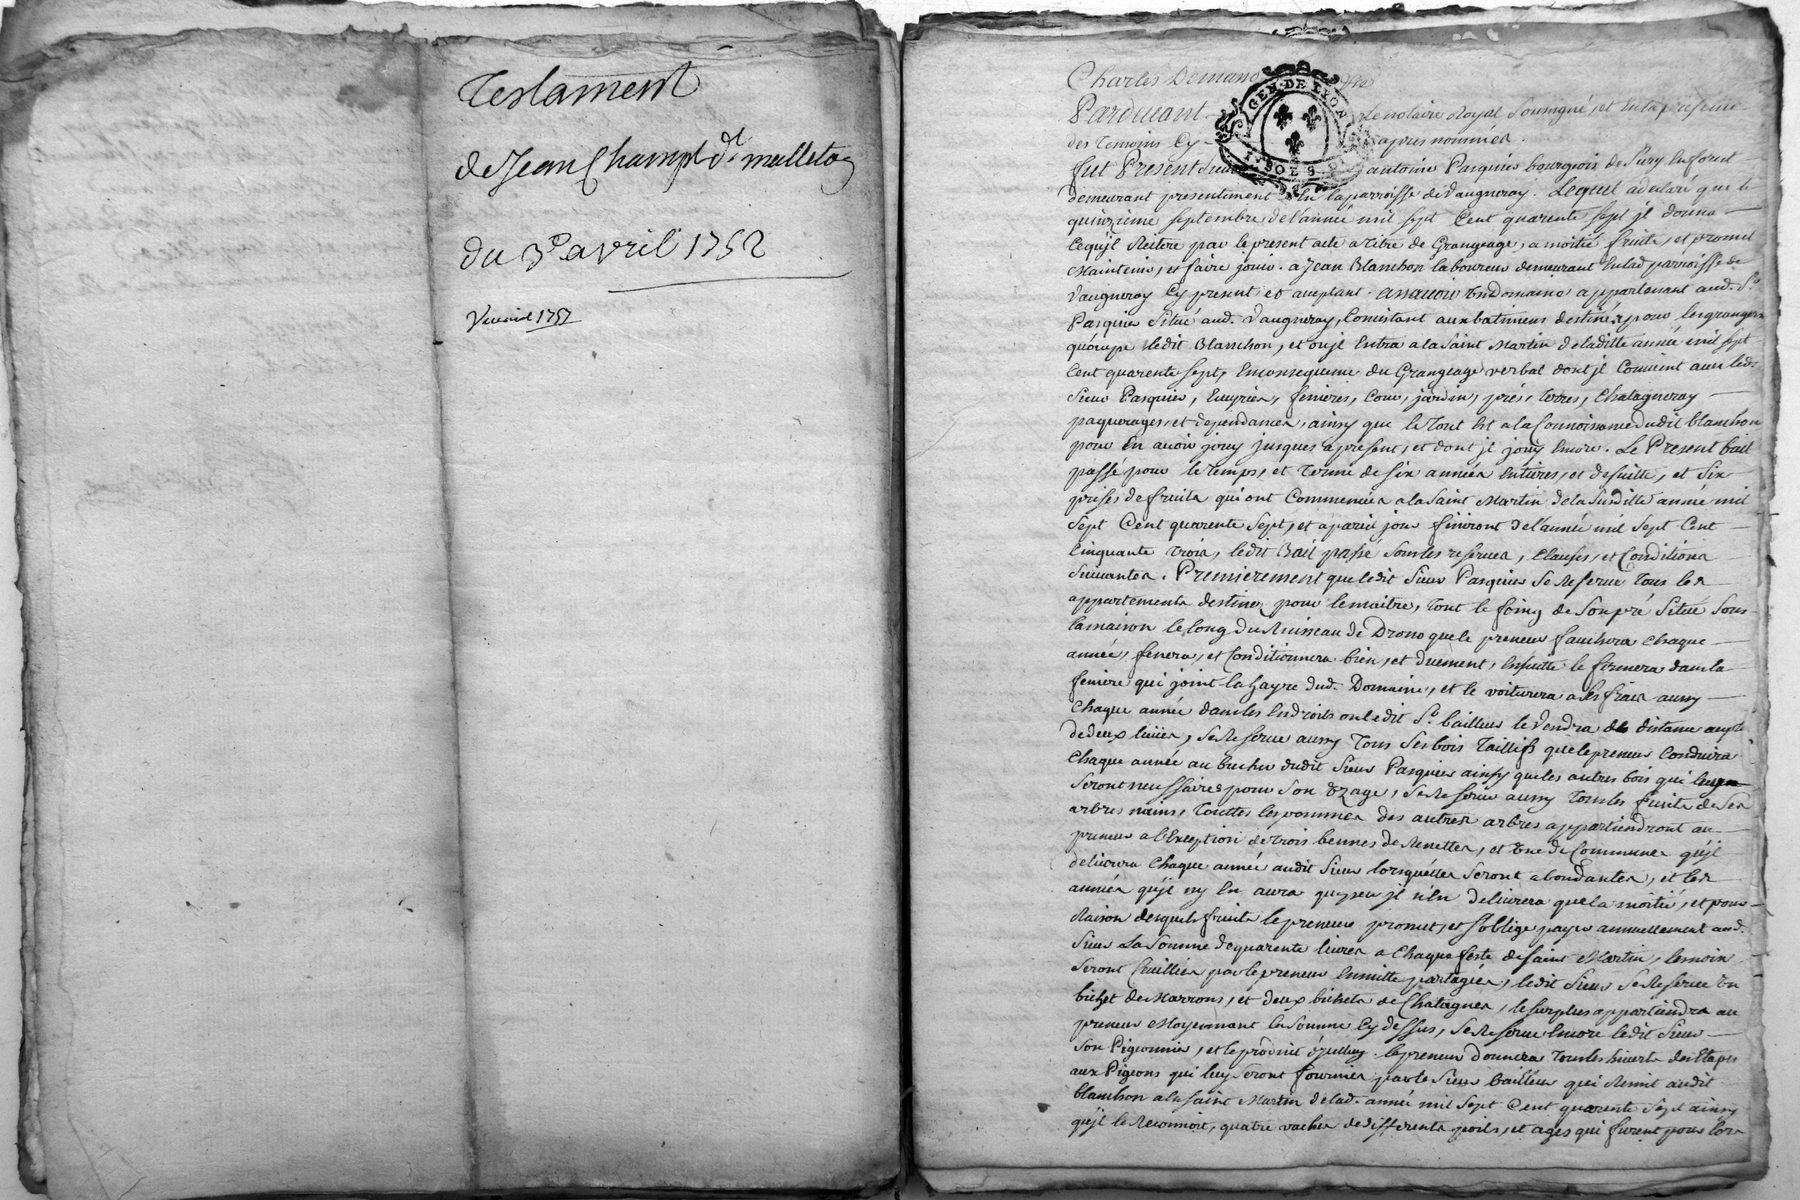 Testament
de Jean Champt dt mulleton
du 3e avril 1752
1757
Charles Demano
Pardevant Le notaire Royal soussigné, et En la presence
des Temoins Cy apres nommés.
fut Present Sieur antoine Pasquier bourgeois de Sury En forest
demeurant presentement En la parroisse de Vaugneray. Lequel a declaré que le
quinzieme septembre de l'année mil sept Cent quarente sept jl donna
Ce qu'jl Reitere par le present acte a titre de Grangeage, a moitié fruits, et promet
Maintenir, et faire jouir. a Jean Blanchon laboureur demeurant En lad. parroisse de
Vaugneray Cy present et acceptant. assavoir Un Domaine appartenant aud. Sr.
Pasquier Situé aud. Vaugneray, Consistant aux batimens destinez pour les grangers
qu'occupe ledit Blanchon, et ou jl Entra a la Saint Martin de laditte année mil sept
Cent quarente sept, En consequence du Grangeage verbal dont jl Convint avec led.
Sieur Pasquier, Ecuyries, fenieres, Cour, jardin, prés, terres, Chatagneray
paquerages, et dependances, ainsy que le Tout Est a la Connoissance dudit blanchon
pour En avoir jouy jusques a present, et dont jl jouy Encore. Le Present bail
passé pour le temps, et terme de six années Entieres, et de suitte, et six
prises de fruits qui ont Commencées a la Saint Martin de la Susditte année mil
Sept Cent quarente Sept, et a pareil jour finiront de l'année mil Sept Cent
Cinquante trois, ledit Bail passé Sous les reserves, Clauses, et Conditions
Suivantes. Premierement que ledit Sieur Pasquier Se Reserve Tous les
appartements destinez pour le maitre, tout le foing de Son pré Situé Sous
la maison le long du Ruisseau de Drono que le preneur fauchera Chaque
année, fenera, et Conditionnera bien, et duement, Ensuitte le fermera dans la
feniere qui joint la hayre dud. Domaine, et le voiturera a Ses frais aussy
Chaque année dans les Endroits ou ledit Sr. bailleur le Vendra de distance
de deux lieues, Se Reserve aussy Tous Ses bois Taillifs que le preneur Conduira
Chaque année au bucher dudit Sieur Pasquier ainsy que les autres bois qui luy
Seront necessaires pour Son Uzage, Se Reserve aussy Tous les fruits de Ses
arbres nains, Touttes les pommes des autres arbres appartiendront au
preneur a l'Exception de trois bennes de Renettes, et Une de Communes qu'jl
delivrera Chaque année audit Sieur lorsqu'elles Seront abondantes, et les
années qu'jl ny En aura que peu jl n'En delivrera que la moitié, et pour
Raison desquels fruits le preneur promet, et S'oblige payer annuellement aud.
Sieur La Somme de quarente livres a Chaque feste de Saint Martin, les noix
Seront Cueillies par le preneur Ensuitte partagées, ledit Sieur Se Reserve Un
bichet de Marrons, et deux bichets de Chatagnes, le surplus appartiendra au
preneur Moyennant la Somme Cy dessus, Se Reserve Encore ledit Sieur
Son Pigeonnier, et le produit d'jcelluy. le preneur donnera Tous les hivers des Etapes
aux Pigeons qui luy Seront fournies par le Sieur bailleur qui Remit audit
blanchon a la Saint Martin de lad. année mil Sept Cent quarente Sept ainsy
qu'jl le Reconnoit, quatre vaches de differents poils, et ages qui furent pour lors